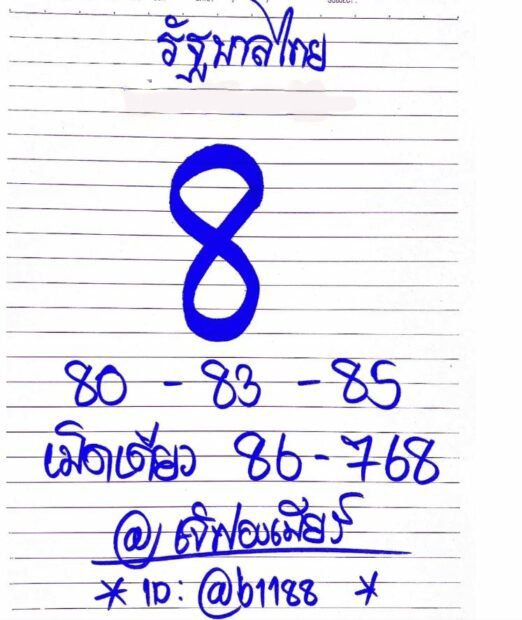 รัฐบาลไทย
8
80 - 83 - 85
เม็ดเดียว 86 - 768
@ เจ๊ฟองเบียร์
* ID: @b1188 *